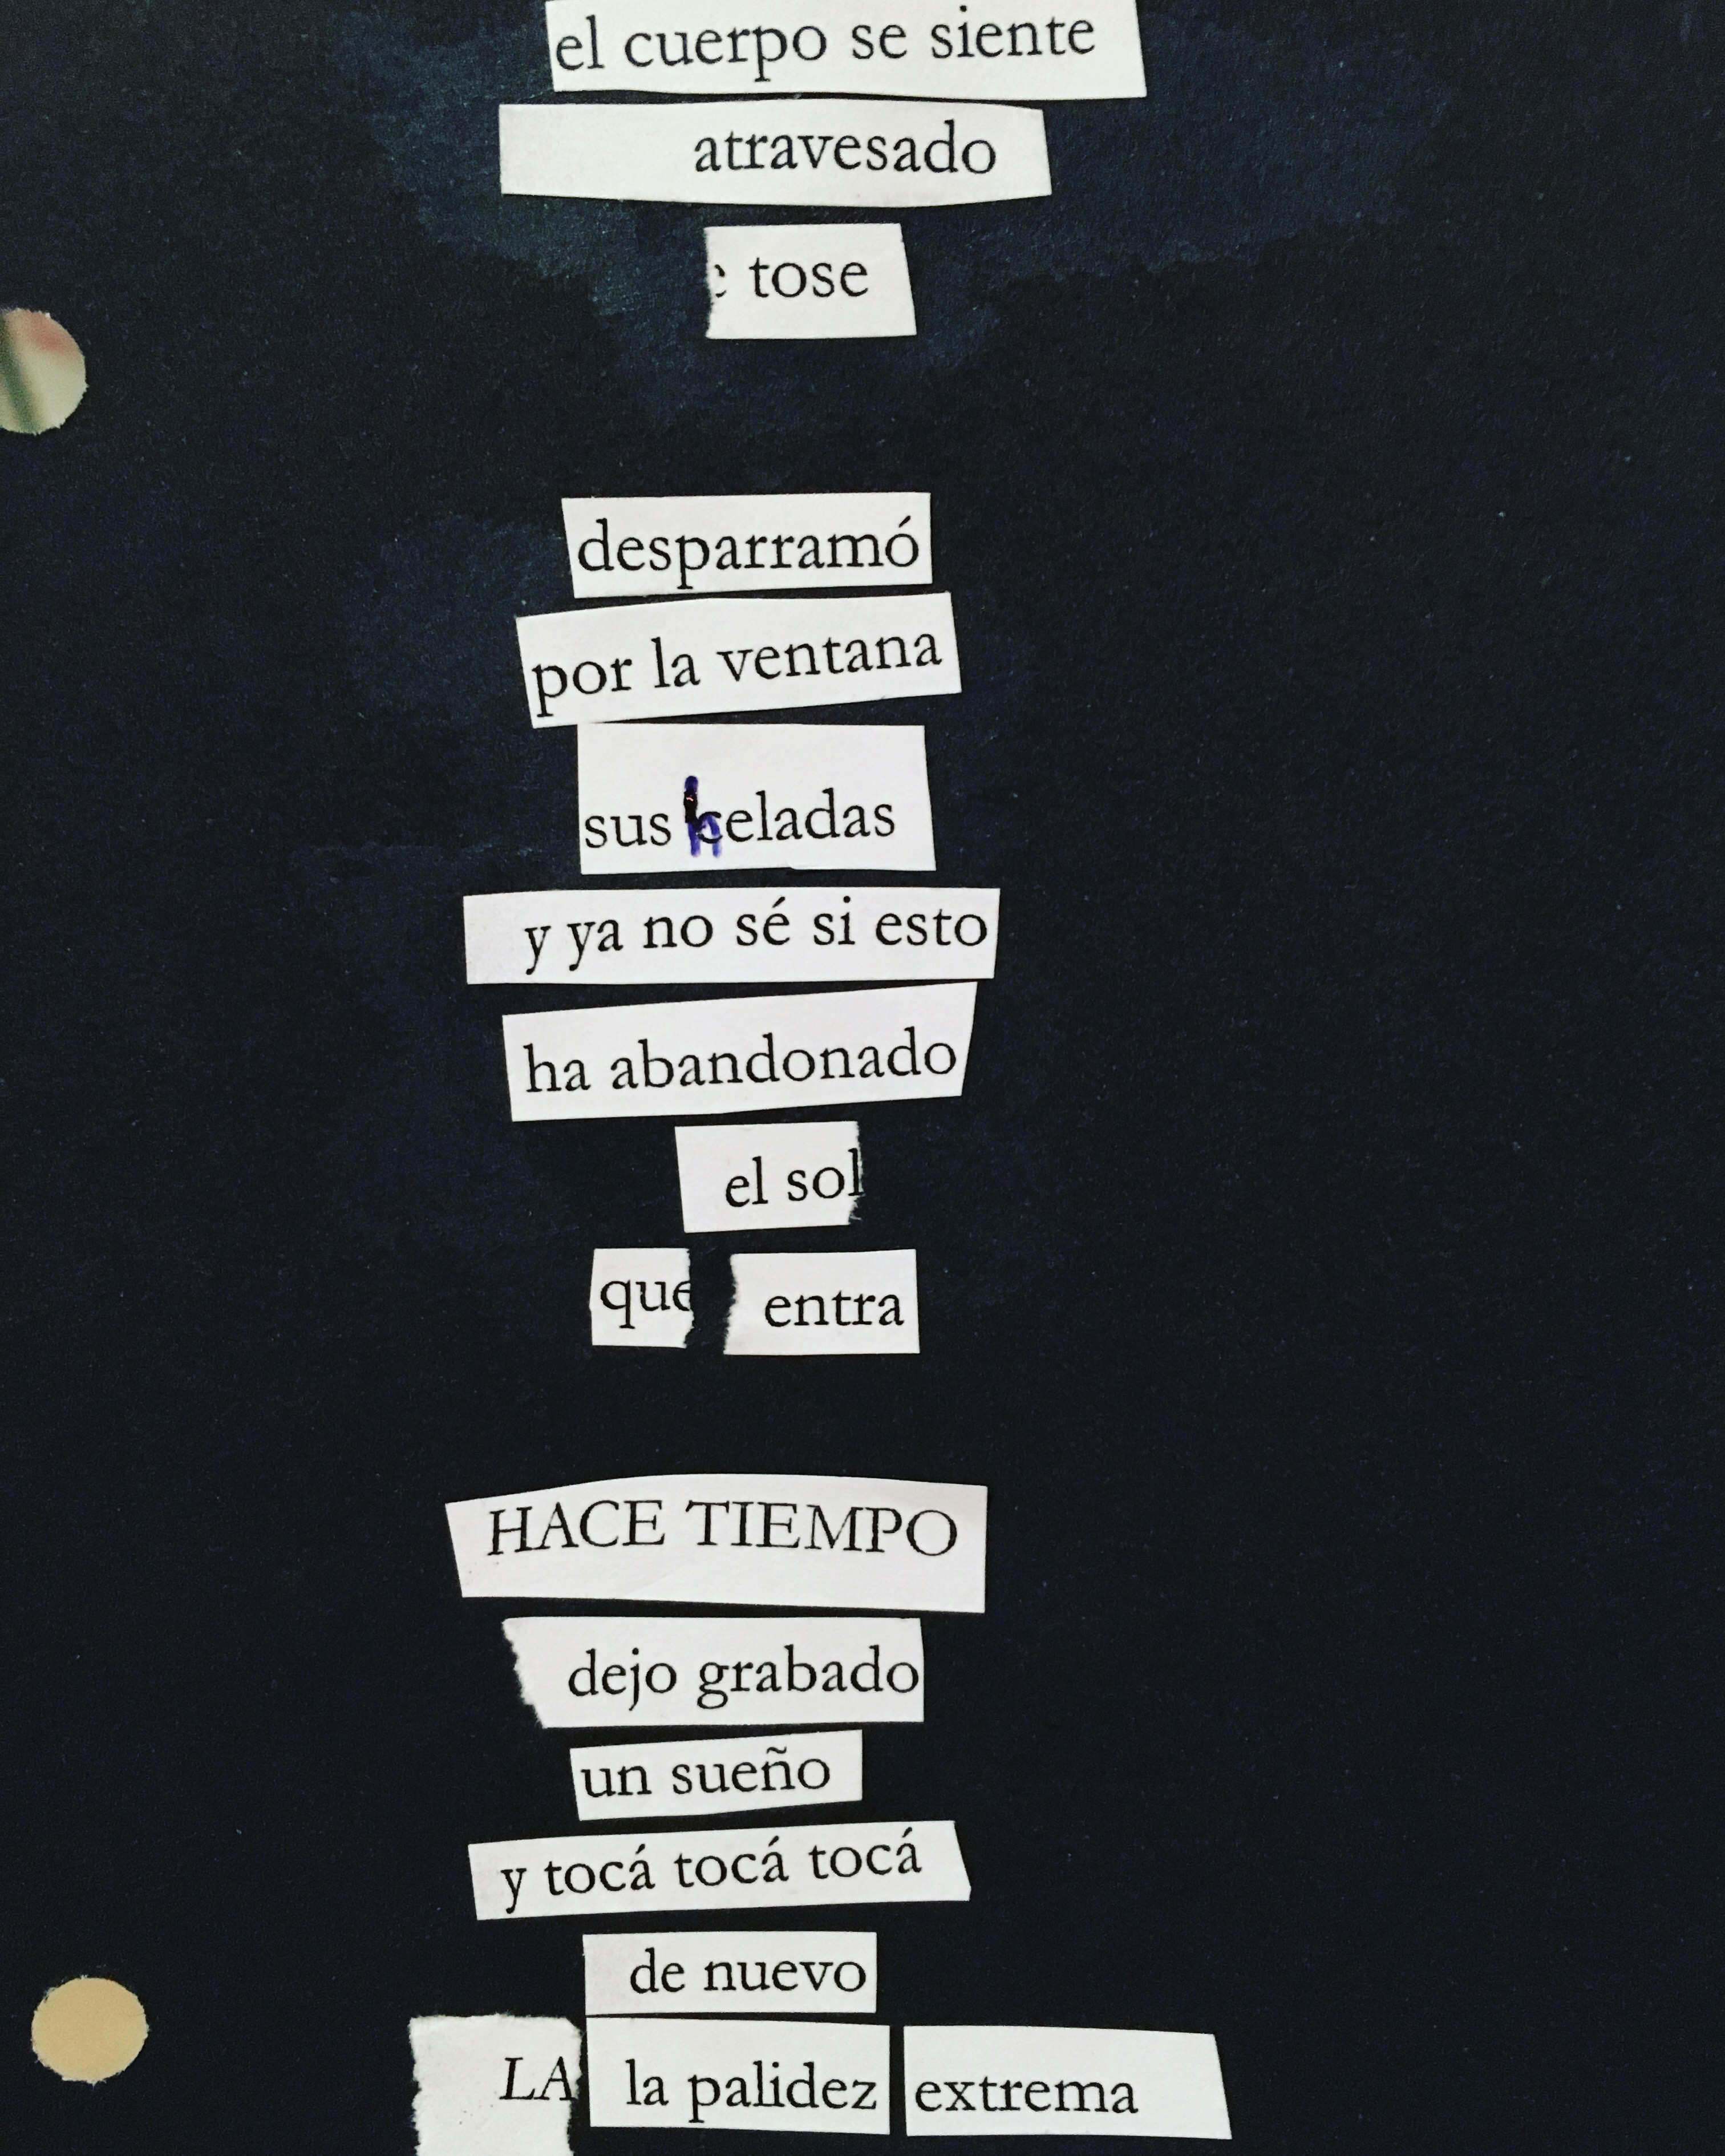 el cuerpo se siente
atravesado
tose
desparramó
por la ventana
sus heladas
y ya no sé si esto
ha abandonado
el sol
que entra
HACE TIEMPO
dejo grabado
un sueño
y tocá tocá tocá
de nuevo
LA la palidez extrema